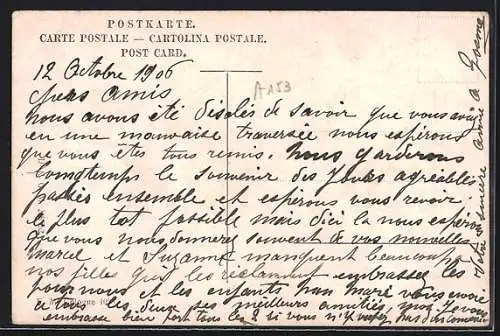 POSTKARTE.
CARTE POSTALE — CARTOLINA POSTALE.
POST CARD.
12 Octobre 1906
A 153
Chers Amis
nous avons été désolés de savoir que vous aviez
eu une mauvaise traversée nous espérons
que vous êtes tous remis. Nous garderons
longtemps le souvenir des jours agréables
passés ensemble et espérons vous revoir
le plus tot possible mais d'ici la nous espérons
que vous nous donnerez souvent de vos nouvelles
marcel et Suzanne manquent beaucoup
nos filles qui les réclament embrassez les
pour nous et les enfants mon mari vous envoie
a tous les deux ses meilleurs amitiés moi je vous
embrasse bien fort tous les
Votre sincère amie